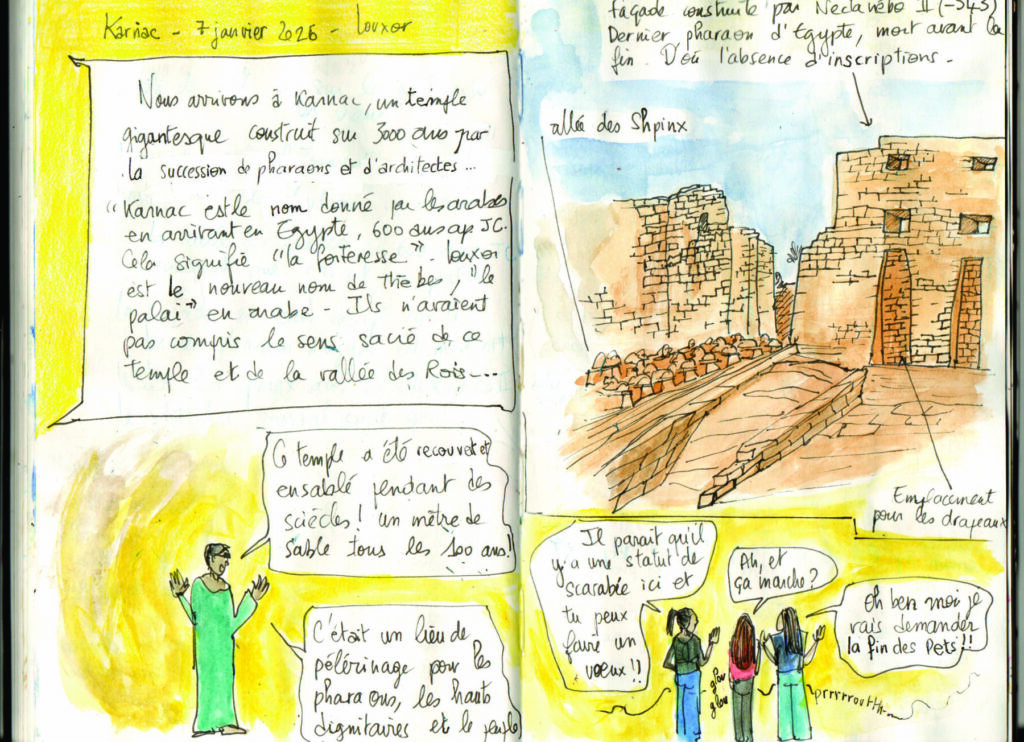 Karnac - 7 janvier 2026 - Louxor
Nous arrivons à Karnac, un temple
gigantesque construit sur 3000 ans par
la succession de pharaons et d'architectes...
"Karnac est le nom donné par les arabes
en arrivant en Egypte, 600 ans ap JC.
Cela signifie "la forteresse". Louxor
est le nouveau nom de Thèbes, "le
palai" en arabe - Ils n'avaient
pas compris le sens sacré de ce
temple et de la vallée des Rois...
Ce temple a été recouvert et
ensablé pendant des
sciècles! un mètre de
sable tous les 100 ans!
C'était un lieu de
pélérinage pour les
pharaons, les hauts
dignitaires et le peuple
façade construite par Nectanébo II (-343)
Dernier pharaon d'Egypte, mort avant la
fin. D'où l'absence d'inscriptions.
allée des Shpinx
Emplacement
pour les drapeaux
Il parait qu'il
y a une statut de
scarabée ici et
tu peux
faire un
voeux!!
Ah, et
ça marche?
Oh ben moi je
vais demander
la fin des pets!!
glou
glou
prrrrrouttth